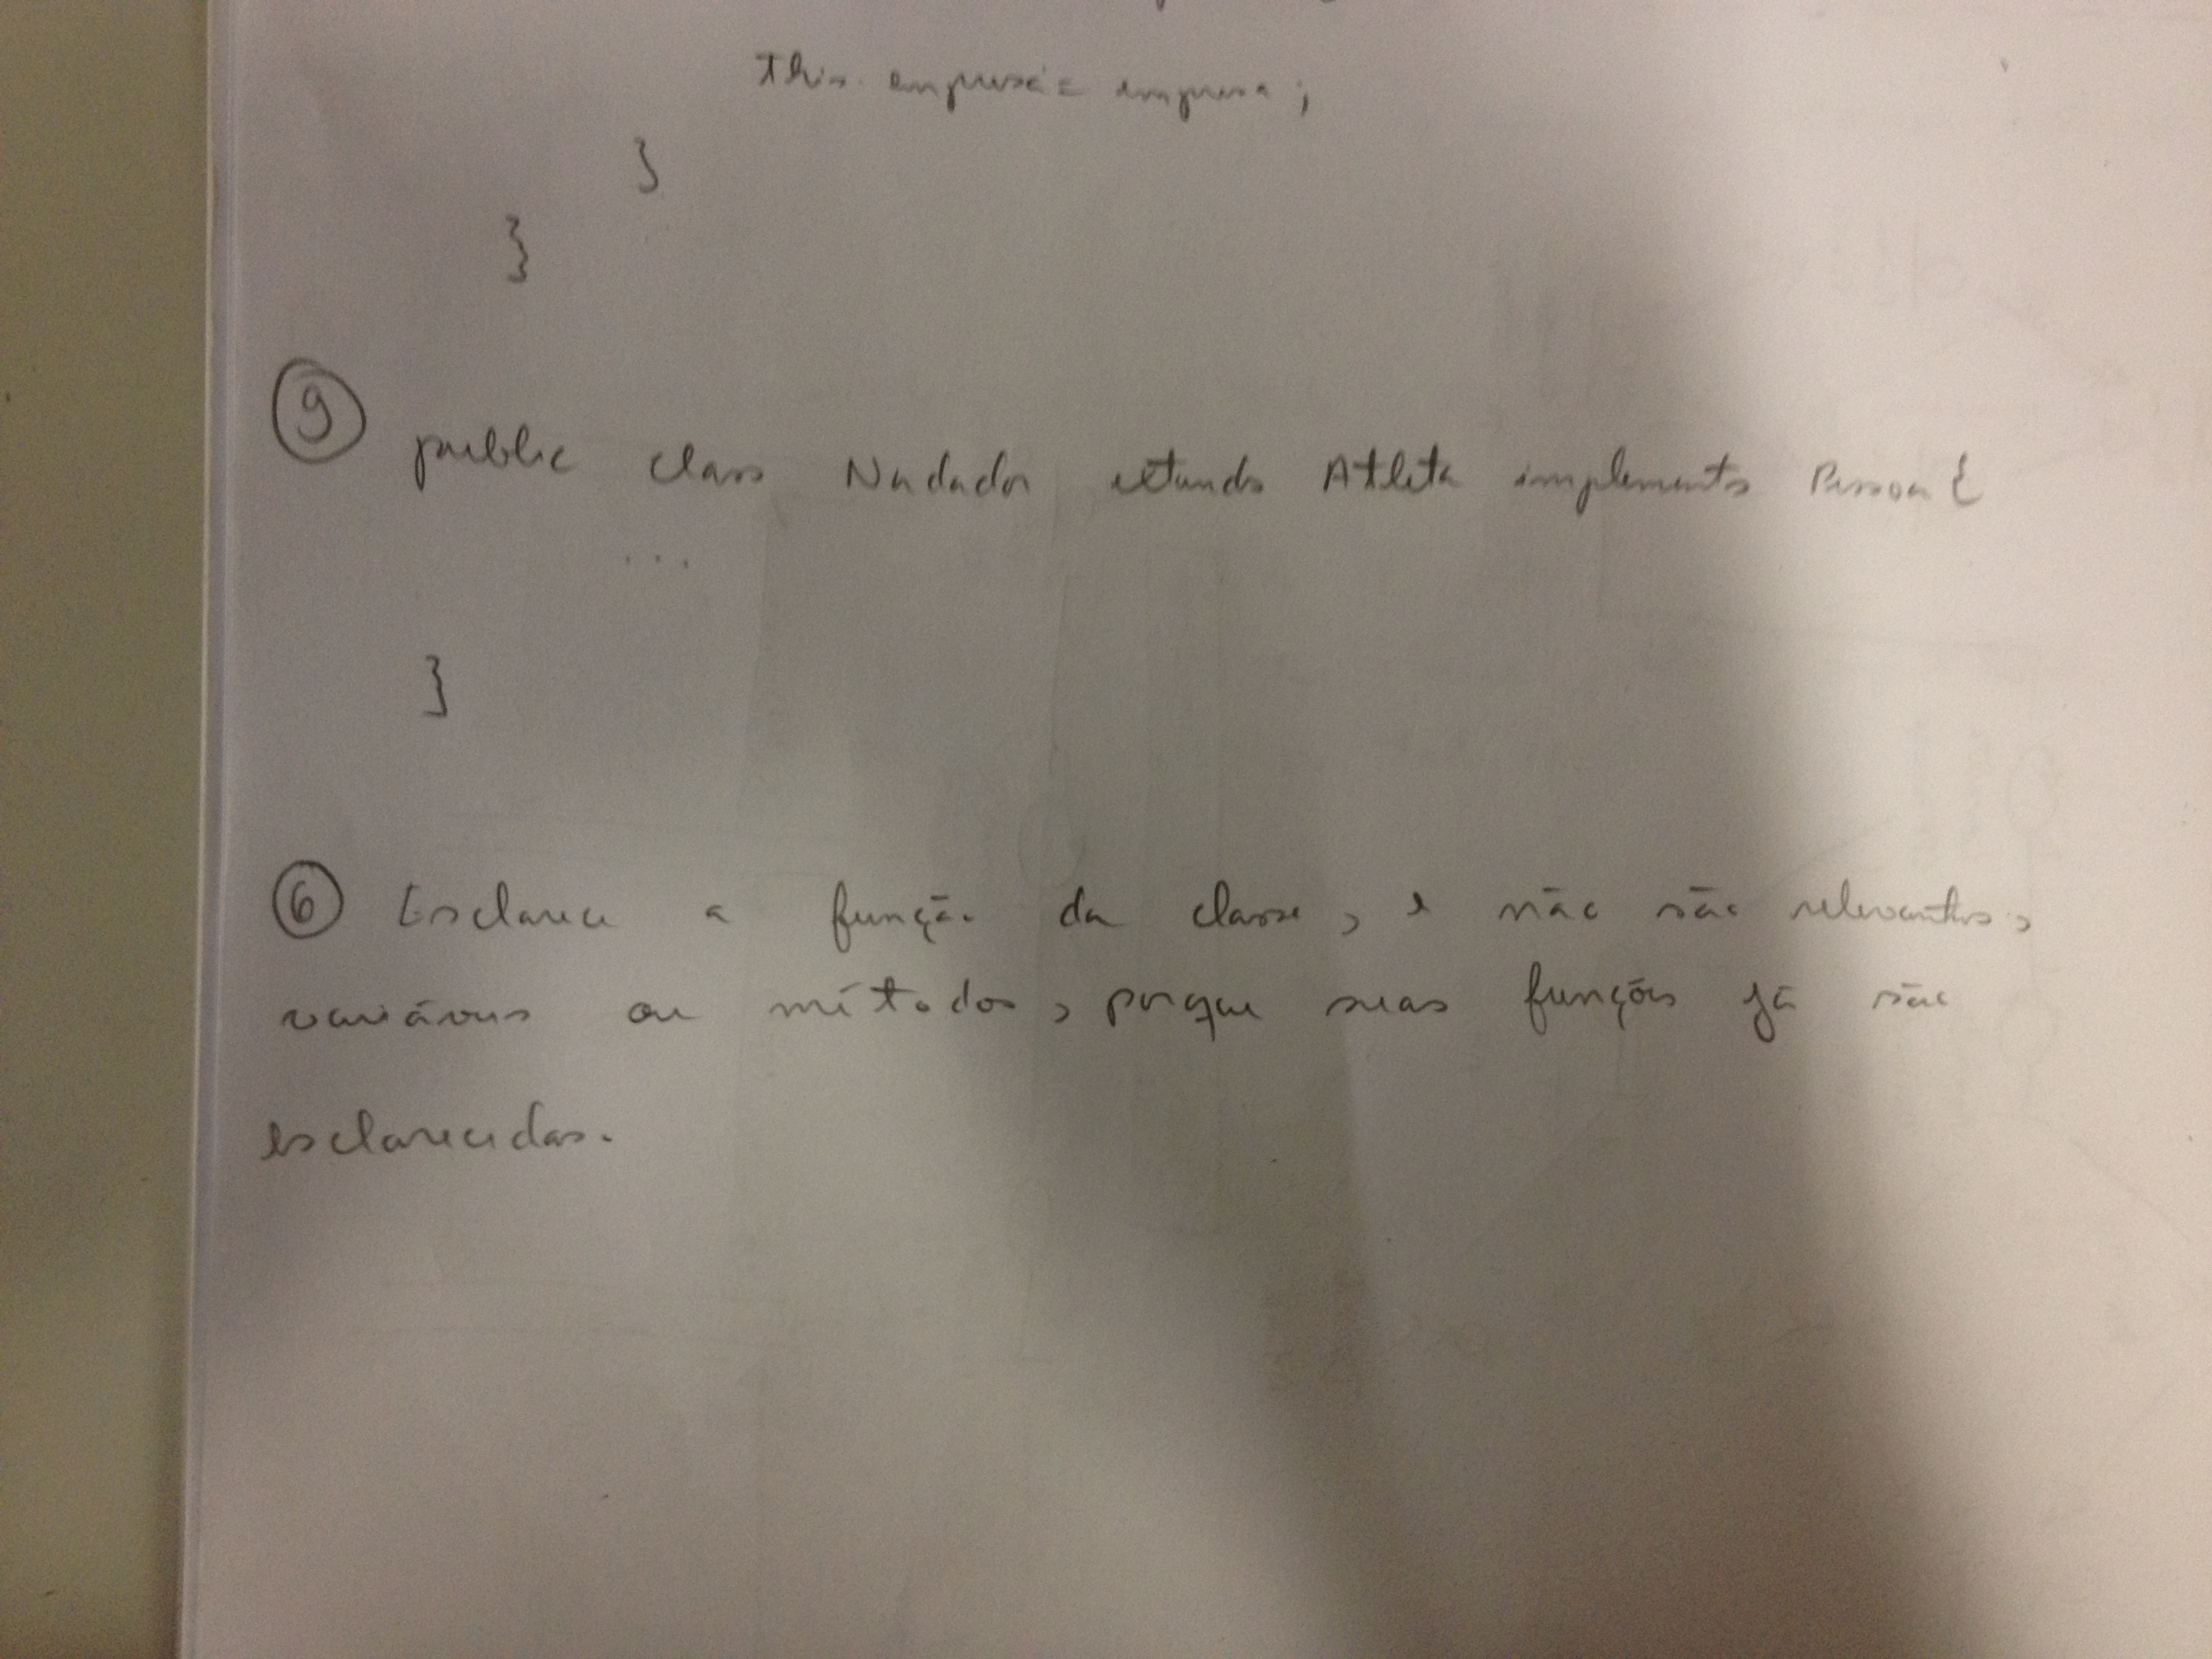 this.empresa = empresa;
}
}
9 public class Nadador extends Atleta implements Pessoa {
...
}
6 Esclarece a função da classe, e não são relevantes,
variáveis ou métodos, porque suas funções já são
esclarecidas.